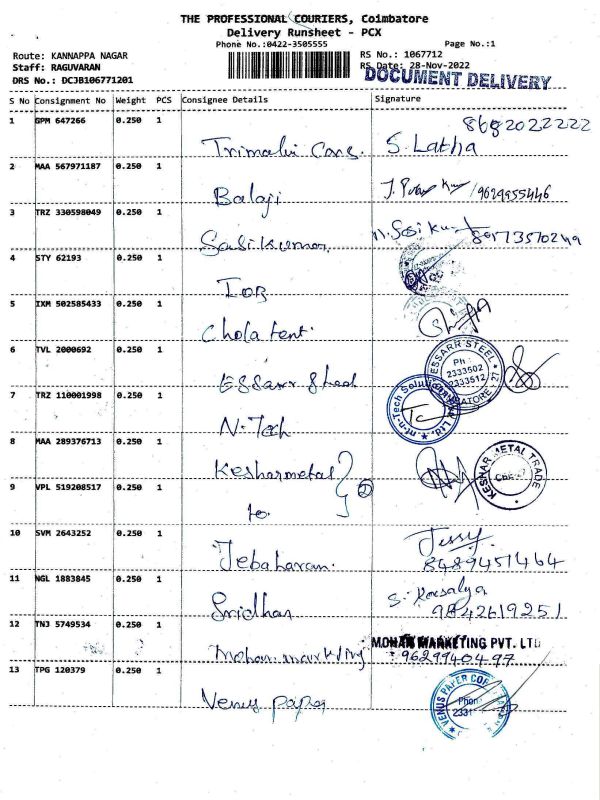 THE PROFESSIONAL COURIERS, Coimbatore
Delivery Runsheet - PCX
Phone No.:0422-3505555 Page No.:1
Route: KANNAPPA NAGAR RS No.: 1067712
Staff: RAGUVARAN RS Date: 28-Nov-2022
DRS No.: DCJB106771201 DOCUMENT DELIVERY
S No Consignment No Weight PCS Consignee Details Signature
1 GPM 647266 0.250 1 8682022222
S. Latha
2 MAA 567971187 0.250 1
Balaji 9629955446
3 TRZ 330598049 0.250 1
Sasikumar
4 STY 62193 0.250 1
IOB
5 IXM 502585433 0.250 1
Chola tent.
6 TVL 2000692 0.250 1
Essarr Steel ESSARR STEEL Ph : 2333502 2333512
7 TRZ 110001998 0.250 1
N. Tech n-Tech Solution Ltd.
8 MAA 289376713 0.250 1
Keshar metal KESHAR METAL TRADE
9 VPL 519208517 0.250 1
to 2
10 SVM 2643252 0.250 1 Jessy
Jebaharan. 8489451464
11 NGL 1883845 0.250 1
Sridhar 9842619251
12 TNJ 5749534 0.250 1 MOHAN MARKETING PVT. LTD
Mohan marketing 9629940497
13 TPG 120379 0.250 1
Venus paper VENUS PAPER